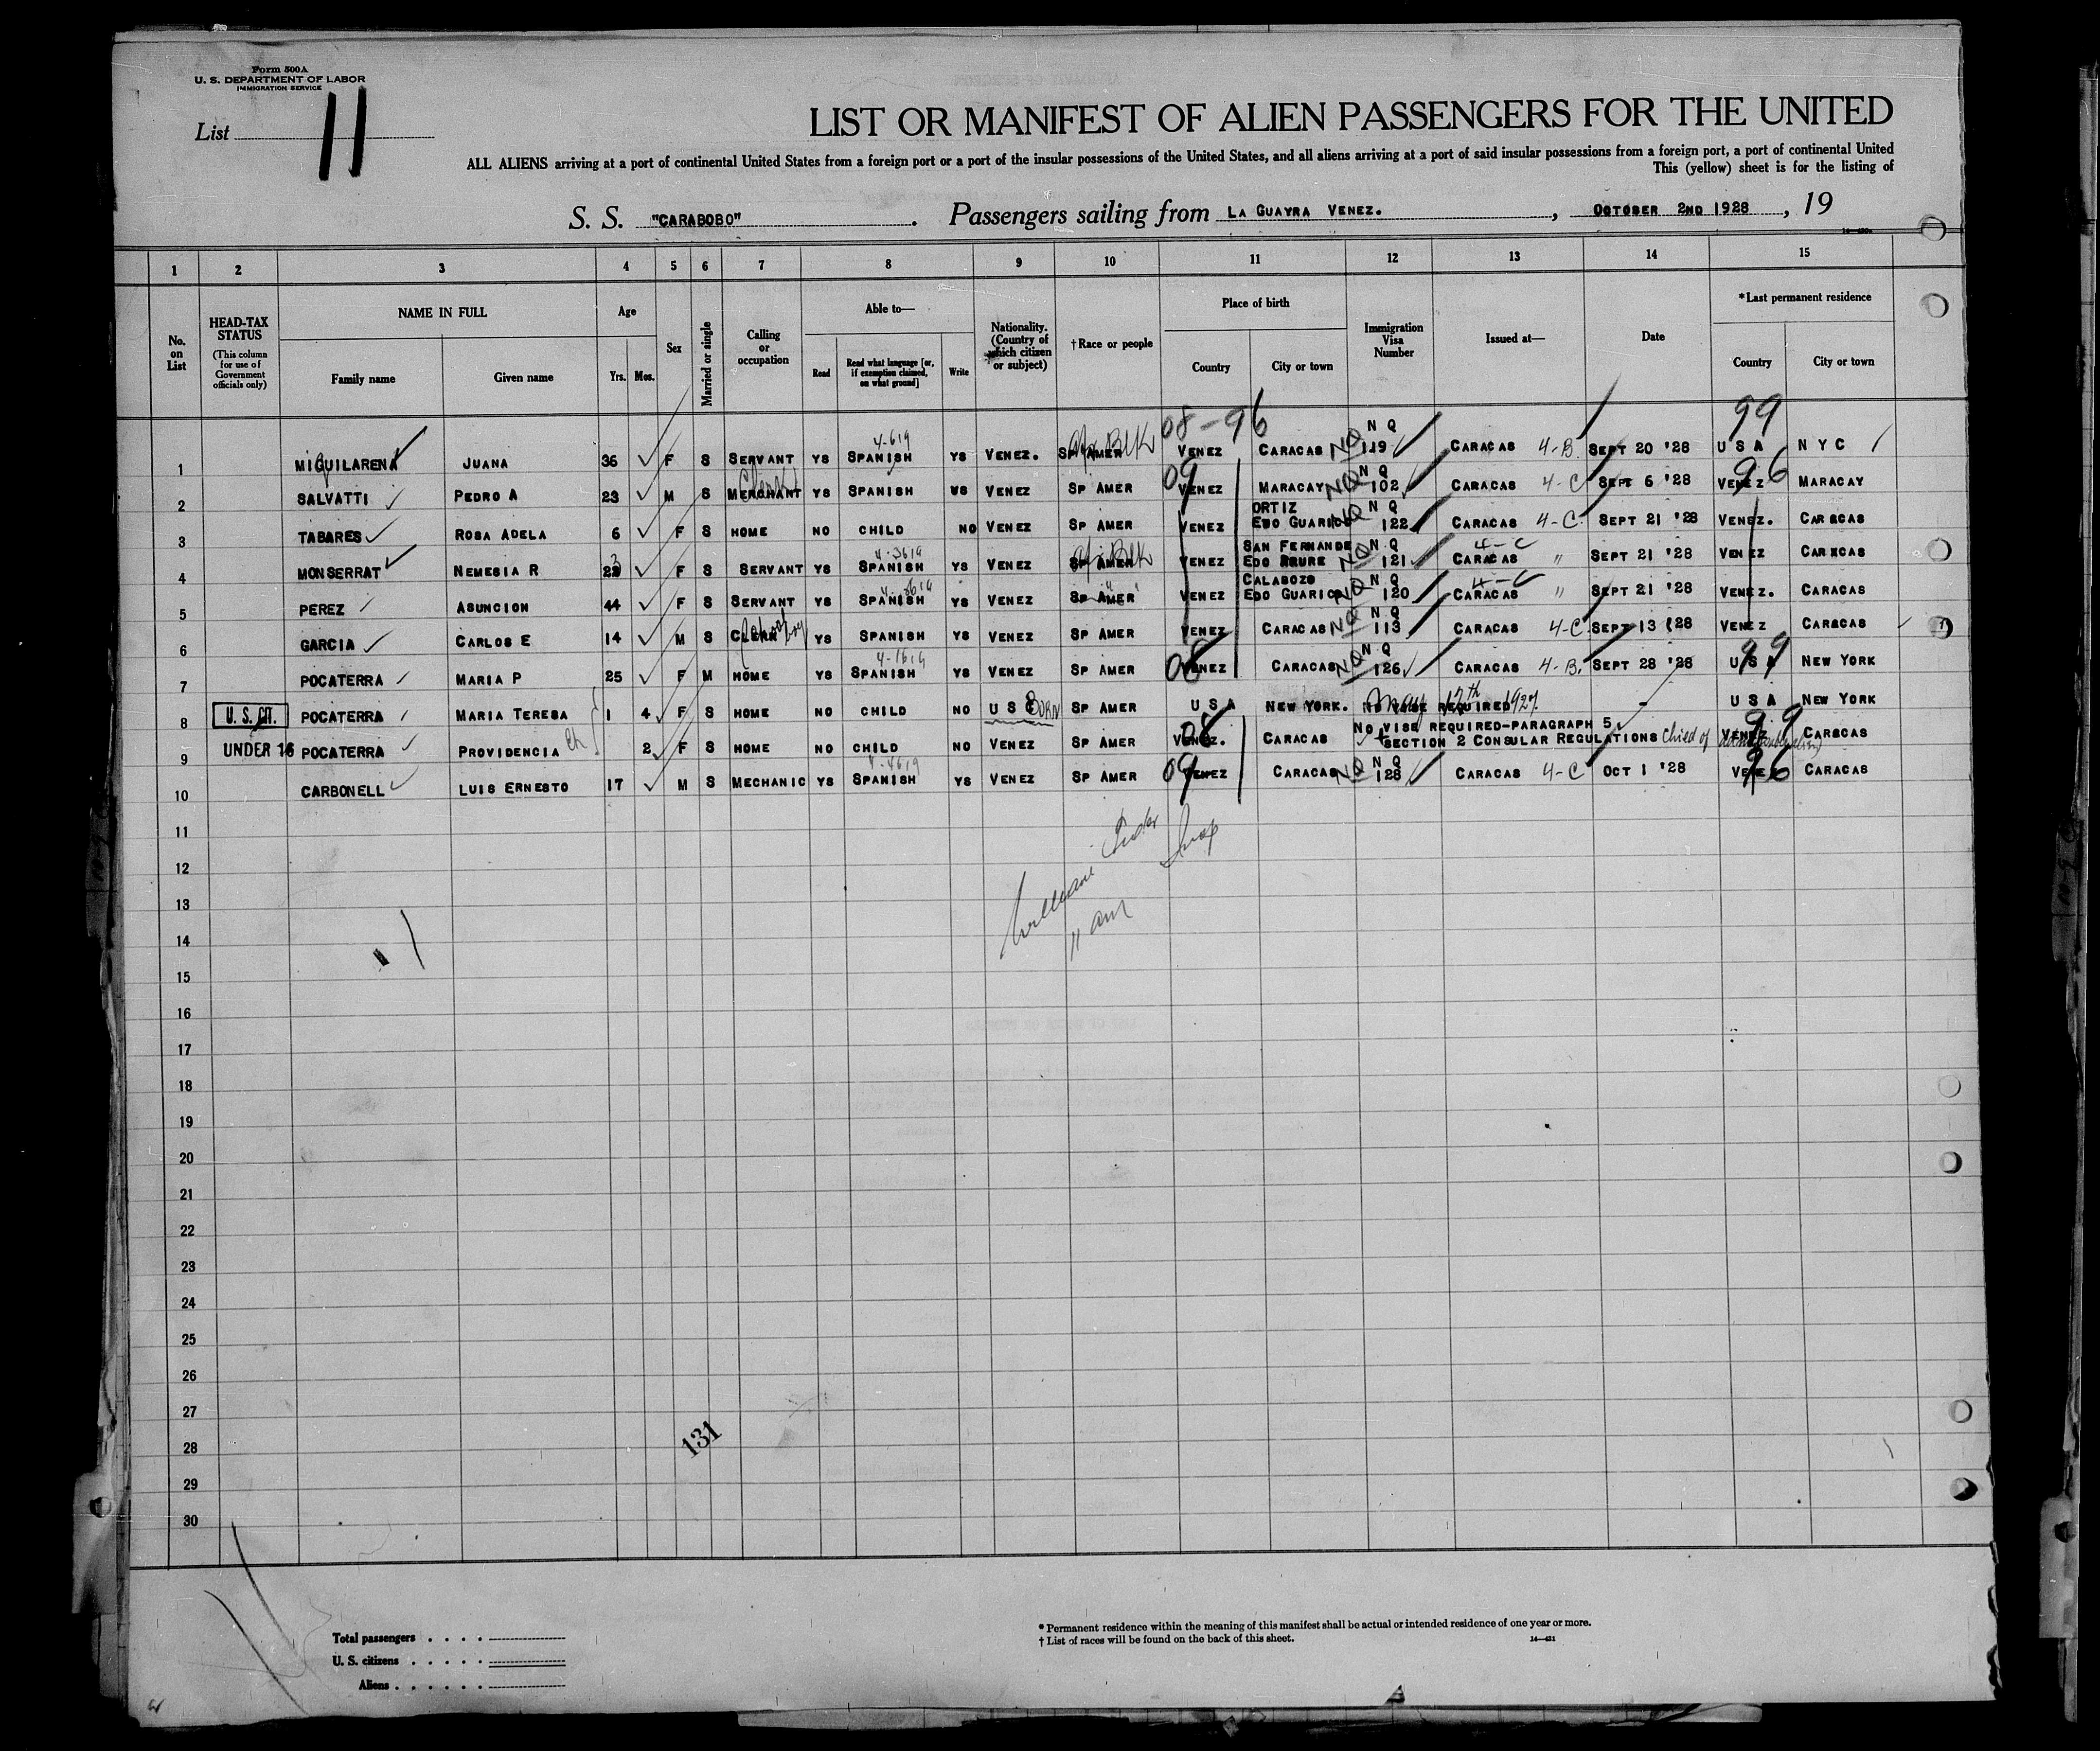 Form 500A
U. S. DEPARTMENT OF LABOR
IMMIGRATION SERVICE
List 11
LIST OR MANIFEST OF ALIEN PASSENGERS FOR THE UNITED
ALL ALIENS arriving at a port of continental United States from a foreign port or a port of the insular possessions of the United States, and all aliens arriving at a port of said insular possessions from a foreign port, a port of continental United
This (yellow) sheet is for the listing of
S. S. "CARABOBO" . Passengers sailing from LA GUAYRA VENEZ. , OCTOBER 2ND 1928 , 19
1 2 3 4 5 6 7 8 9 10 11 12 13 14 15
No. on List
HEAD-TAX STATUS
(This column for use of Government officials only)
NAME IN FULL
Family name Given name
Age
Yrs. Mos.
Sex
Married or single
Calling or occupation
Able to—
Read
Read what language [or, if exemption claimed, on what ground]
Write
Nationality. (Country of which citizen or subject)
† Race or people
Place of birth
Country City or town
Immigration Visa Number
Issued at—
Date
*Last permanent residence
Country City or town
08-96 N Q 99
4-619
1 MIQUILARENA JUANA 36 F S SERVANT YS SPANISH YS VENEZ. SP AMER Blk VENEZ CARACAS NQ 119 CARACAS 4-B. SEPT 20 '28 U S A N Y C
Clerk 09 N Q 96
2 SALVATTI PEDRO A 23 M S MERCHANT YS SPANISH YS VENEZ SP AMER VENEZ MARACAY NQ 102 CARACAS 4-C SEPT 6 '28 VENEZ MARACAY
ORTIZ N Q
3 TABARES ROSA ADELA 6 F S HOME NO CHILD NO VENEZ SP AMER VENEZ EDO GUARICO NQ 122 CARACAS 4-C. SEPT 21 '28 VENEZ. CARACAS
4-3619 SAN FERNANDE N Q 4-C
4 MONSERRAT NEMESIA R 22 F S SERVANT YS SPANISH YS VENEZ SP AMER Blk VENEZ EDO APURE NQ 121 CARACAS " SEPT 21 '28 VENEZ CARACAS
CALABOZO N Q 4-C
5 PEREZ ASUNCION 44 F S SERVANT YS SPANISH YS VENEZ SP AMER VENEZ EDO GUARICO NQ 120 CARACAS " SEPT 21 '28 VENEZ. CARACAS
School boy N Q
6 GARCIA CARLOS E 14 M S CLERK YS SPANISH YS VENEZ SP AMER VENEZ CARACAS NQ 113 CARACAS 4-C. SEPT 13 '28 VENEZ CARACAS
4-1619 08 N Q 99
7 POCATERRA MARIA P 25 F M HOME YS SPANISH YS VENEZ SP AMER VENEZ CARACAS NQ 126 CARACAS 4-B. SEPT 28 '28 U S A NEW YORK
8 U. S. CIT. POCATERRA MARIA TERESA 1 4 F S HOME NO CHILD NO U S Born SP AMER U S A NEW YORK. NO VISE REQUIRED May 12th 1927. - U S A NEW YORK
08 NO VISE REQUIRED-PARAGRAPH 5 99
9 UNDER 16 POCATERRA PROVIDENCIA Ch 2 F S HOME NO CHILD NO VENEZ SP AMER VENEZ. CARACAS SECTION 2 CONSULAR REGULATIONS Child of VENEZ CARACAS
4-4619 09 N Q 96
10 CARBONELL LUIS ERNESTO 17 M S MECHANIC YS SPANISH YS VENEZ SP AMER VENEZ CARACAS NQ 128 CARACAS 4-C OCT 1 '28 VENEZ CARACAS
11
William Insp
12
13
11 am
14
15
16
17
18
19
20
21
22
23
24
25
26
27
28
131
29
30
Total passengers
U. S. citizens
Aliens
* Permanent residence within the meaning of this manifest shall be actual or intended residence of one year or more.
† List of races will be found on the back of this sheet.
14—421